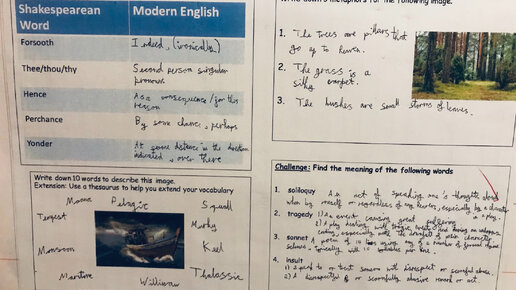 Shakespearean Word
Modern English
Forsooth
Indeed, (ironically)
Thee/thou/thy
Second person singular
pronoun
Hence
As a consequence / for this
reason
Perchance
By some chance, perhaps
Yonder
At some distance in the direction
indicated, over there
Write down 10 words to describe this image.
Extension: Use a thesaurus to help you extend your vocabulary
Pelagic
Squall
Tempest
Murky
Monsoon
Keel
Maritime
Thalassic
Williwaw
for the following image.
1. The trees are pillars that
go up to heaven.
2. The grass is a
silky carpet.
3. The bushes are small storms of leaves.
Challenge: Find the meaning of the following words
1. soliloquy An act of speaking one's thoughts aloud
when by oneself or regardless of any hearers, especially by a character
in a play.
2. tragedy 1) An event causing great suffering
2) A play dealing with tragic events and having an unhappy
ending, especially one the downfall of main character.
3. sonnet A poem of 14 lines using any of a number of formal rhyme
schemes, typically with 10 syllables per line.
4. insult
1) Speak to or treat someone with disrespect or scornful abuse.
2) A disrespectful or scornfully abusive remark or act.